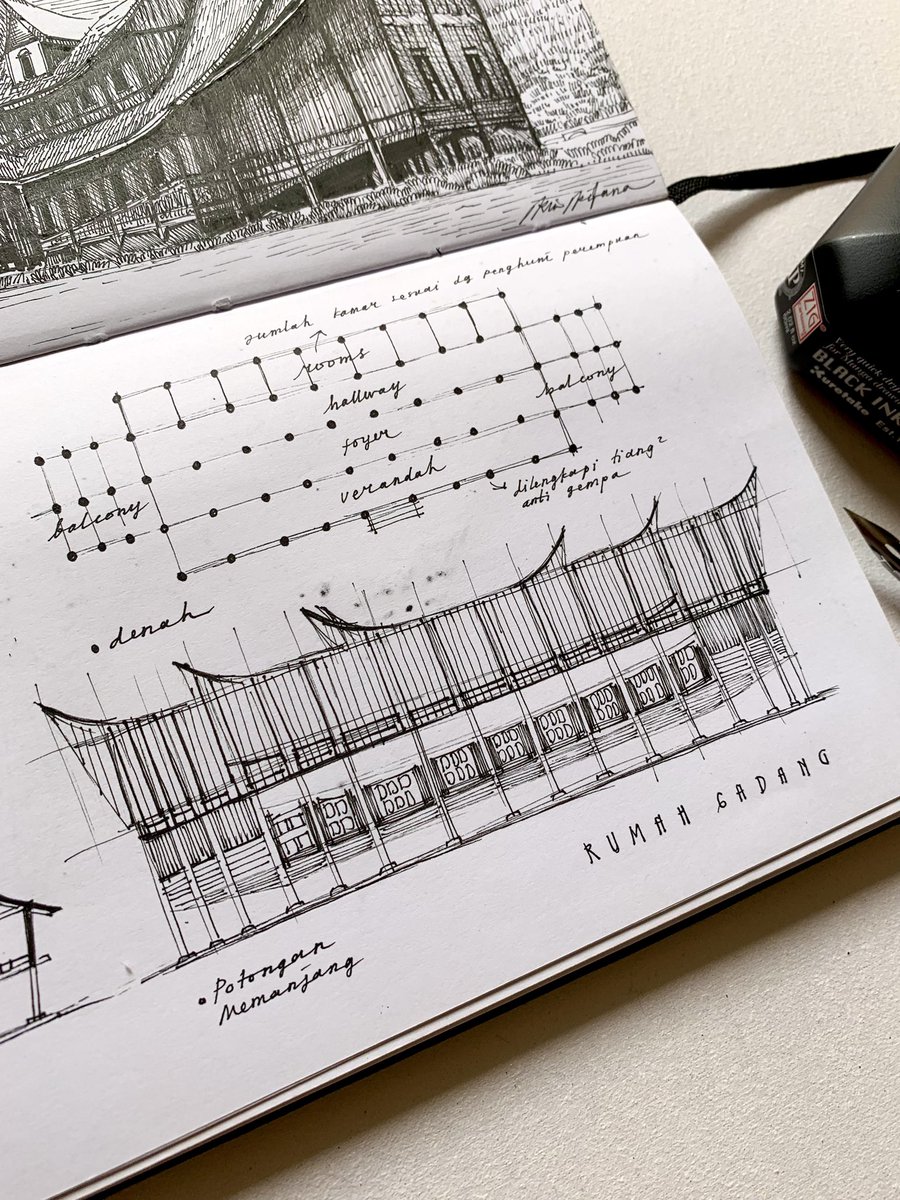 Jumlah kamar sesuai dg penghuni perempuan
rooms
hallway
balcony
foyer
verandah
balcony
dilengkapi tiang²
anti gempa
denah
RUMAH GADANG
Potongan
Memanjang
ZIG
BLACK INK
Kuretake